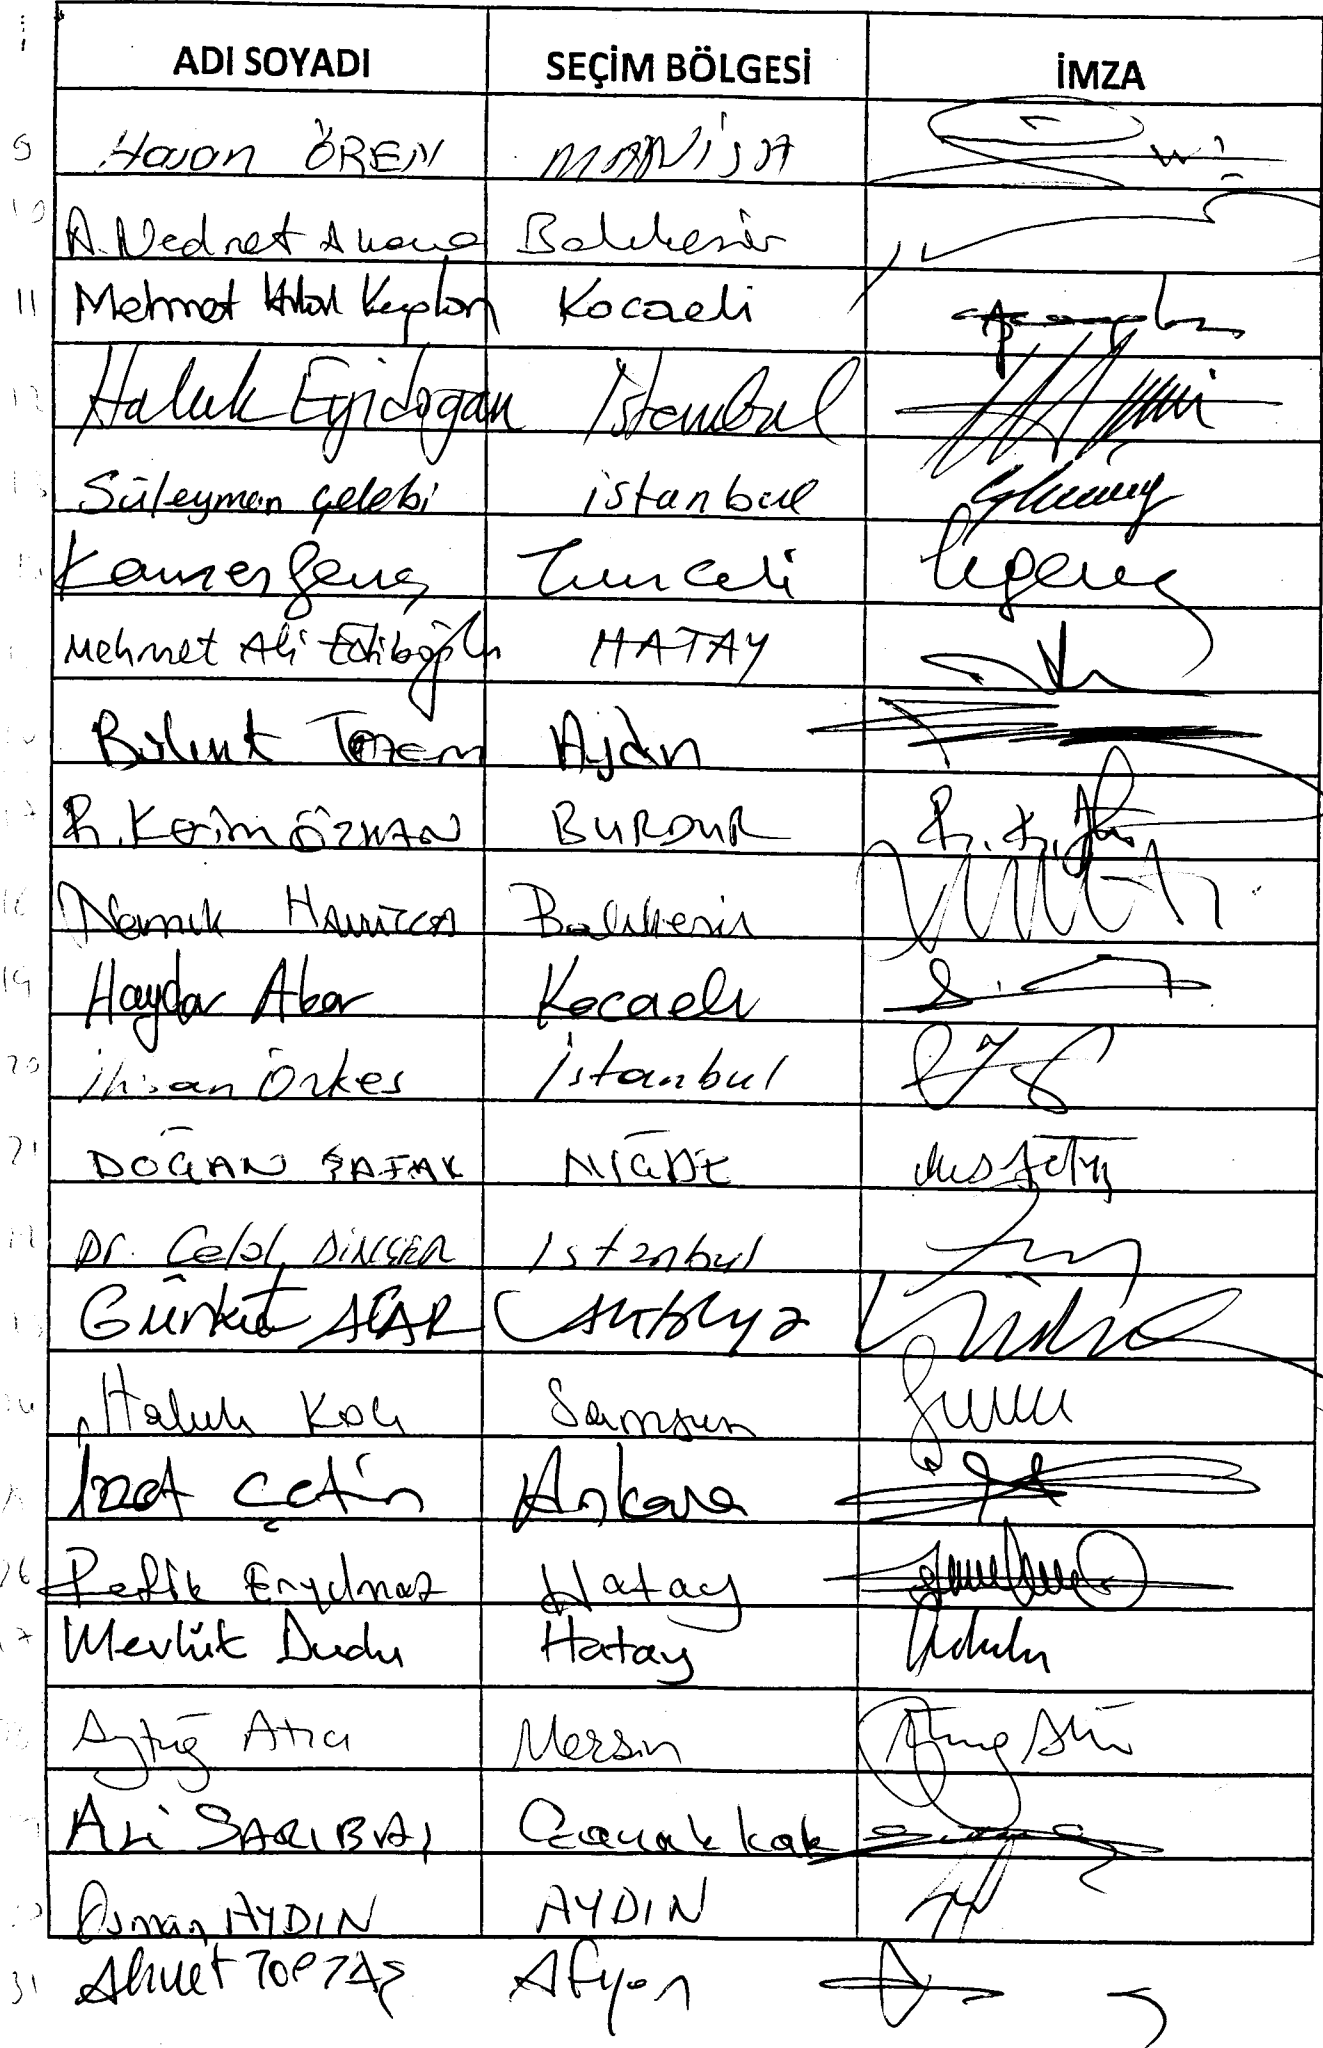 ADI SOYADI SEÇİM BÖLGESİ İMZA
9 Hasan ÖREN MANİSA
10 A. Nedret Akova Balıkesir
11 Mehmet Hilal Kaplan Kocaeli
12 Haluk Eyidoğan İstanbul
13 Süleyman Çelebi istanbul
Kamer Genç Tunceli
Mehmet Ali Ediboğlu HATAY
Bülent Tezcan Aydın
17 R. Kerim ÖZKAN BURDUR
18 Namık HAVUTÇA Balıkesir
19 Haydar Akar Kocaeli
20 İhsan Özkes İstanbul
21 DOĞAN ŞAFAK NİĞDE
Dr. Celal DİNÇER İstanbul
Gürkut ACAR Antalya
Haluk Koç Samsun
İzzet Çetin Ankara
26 Refik Eryılmaz Hatay
27 Mevlüt Dudu Hatay
Aytuğ Atıcı Mersin
Ali SARIBAŞ Çanakkale
Osman AYDIN AYDIN
31 Ahmet TOPTAŞ Afyon